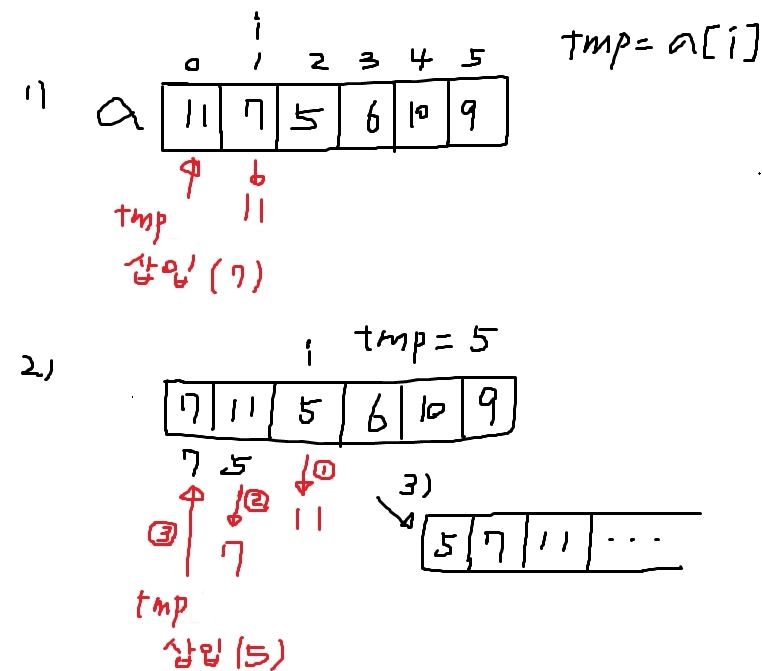 i
tmp = a[i]
0 1 2 3 4 5
1)
a 11 7 5 6 10 9
tmp 11
삽입 (7)
2)
i tmp = 5
7 11 5 6 10 9
7 5 ①
② 11
③ 7
3)
5 7 11 ...
tmp
삽입 (5)